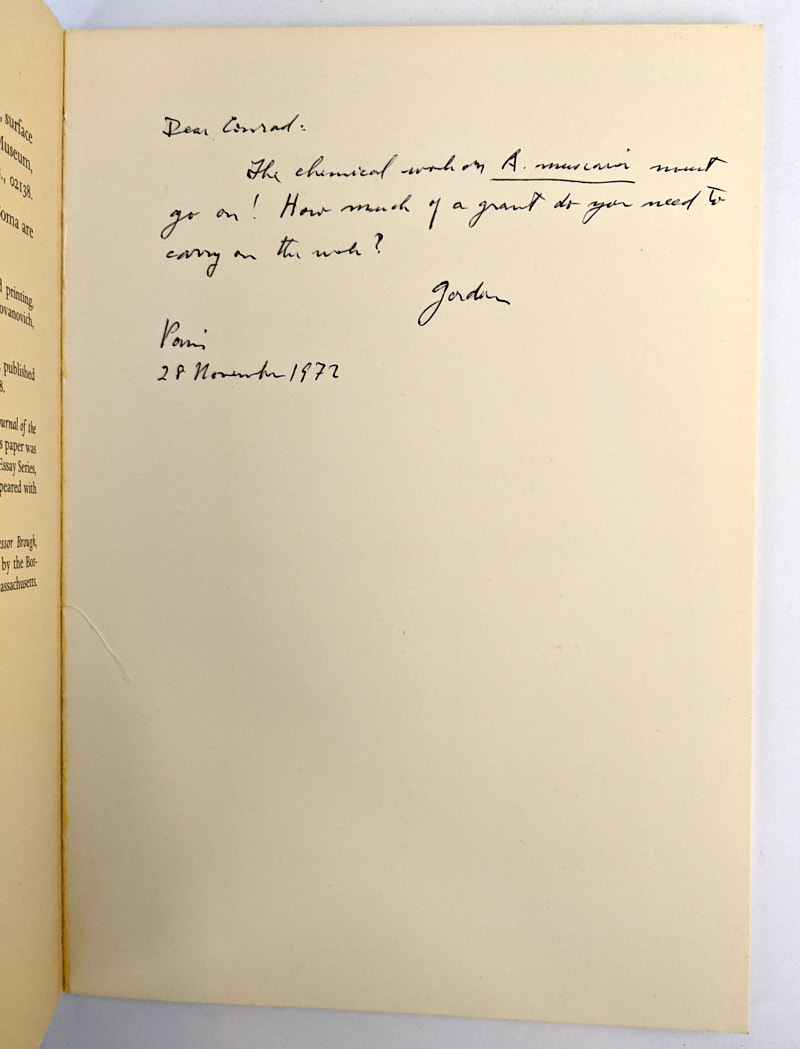 , surface
Museum,
., 02138.
Soma are
d printing,
ovanovich,
, published
8.
urnal of the
s paper was
Essay Series,
peared with
ssor Brough,
by the Bot-
assachusetts.
Dear Conrad:
The chemical work on A. muscaria must
go on! How much of a grant do you need to
carry on the work?
Gordon
Paris
28 November 1972